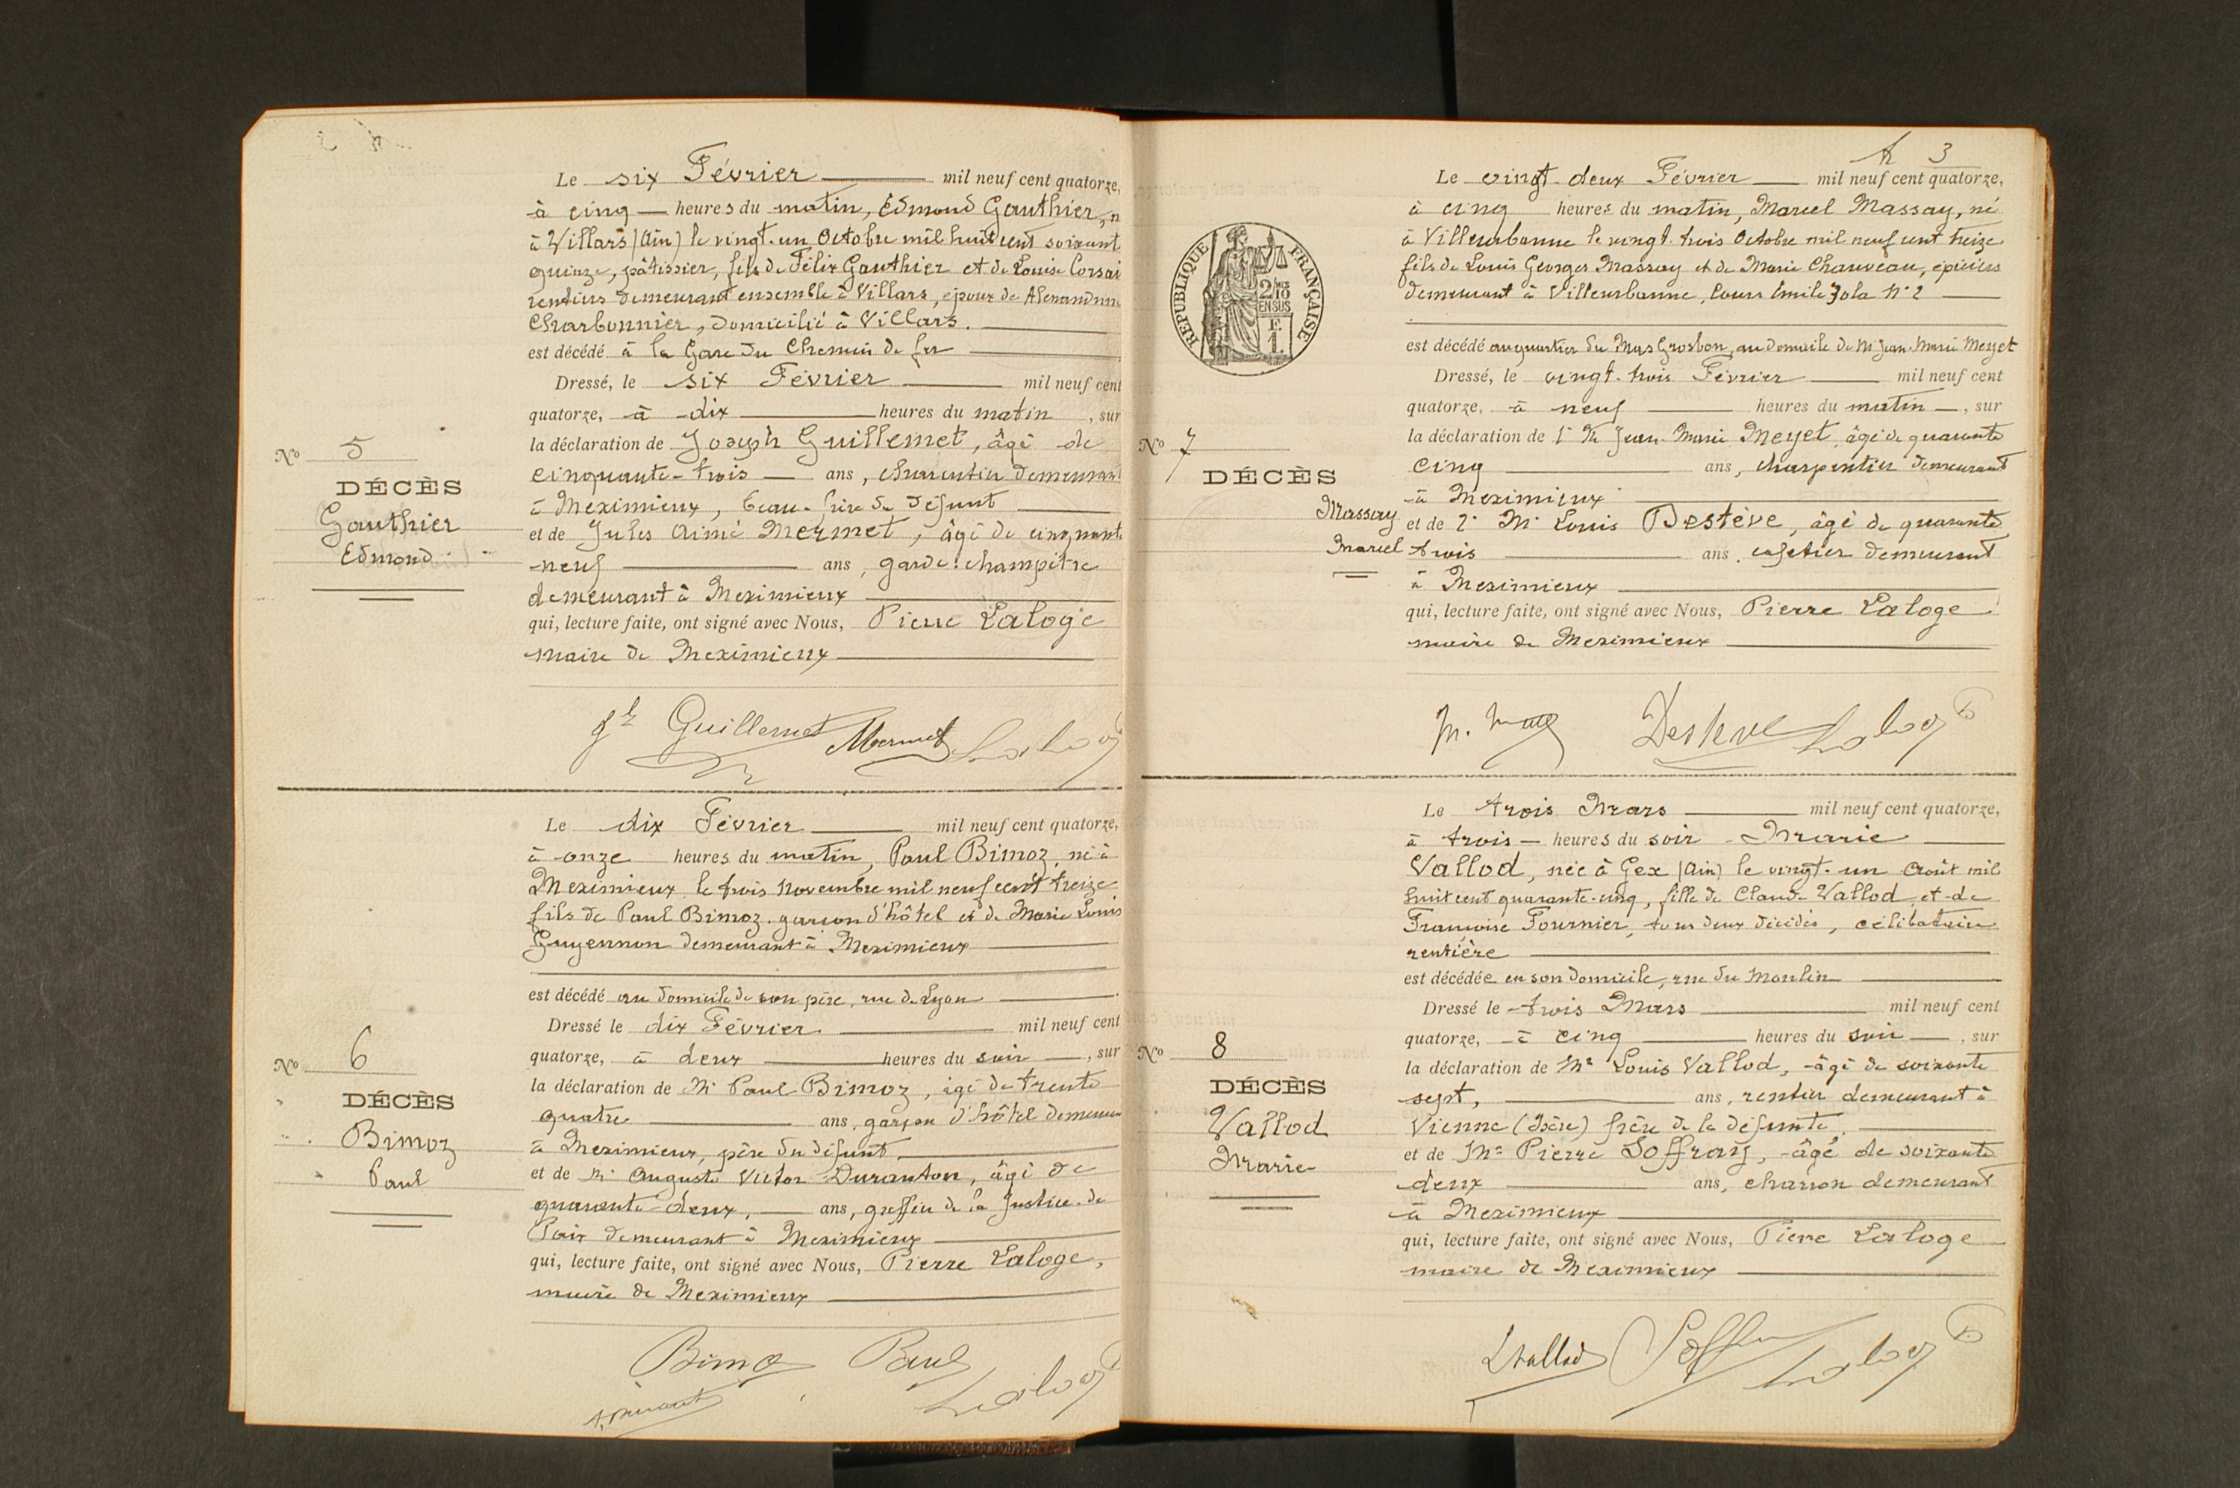 Le six Février mil neuf cent quatorze,
à cinq heures du matin, Edmond Gauthier, n
à Villars (Ain) le vingt-un Octobre mil huit cent soixant
quinze, pâtissier, fils de Félix Gauthier et de Louise
rentiers demeurant ensemble à Villars, époux de
Charbonnier, domicilié à Villars.
est décédé à la Gare du Chemin de fer
Dressé, le six Février mil neuf cent
quatorze, à dix heures du matin, sur
la déclaration de Joseph Guillemet, âgé de
cinquante-trois ans, charpentier demeurant
à Meximieux, beau-frère du défunt
et de Jules Aimé Mermet, âgé de cinquant
neuf ans, garde-champêtre
demeurant à Meximieux
qui, lecture faite, ont signé avec Nous, Pierre Laloge
maire de Meximieux
No 5
DÉCÈS
Gauthier
Edmond
Jh Guillemet Mermet Laloge
Le dix Février mil neuf cent quatorze,
à onze heures du matin, Paul Bimoz, né à
Meximieux le trois Novembre mil neuf cent treize
fils de Paul Bimoz garçon d'hôtel et de Marie Louis
Guyennon demeurant à Meximieux
est décédé au domicile de son père, rue de Lyon
Dressé le dix Février mil neuf cent
quatorze, à deux heures du soir, sur
la déclaration de Mr Paul Bimoz, âgé de trente
quatre ans, garçon d'hôtel demeuran
à Meximieux, père du défunt
et de Mr Auguste Victor Duranton, âgé de
quarante-deux, ans, greffier de la Justice de
Paix demeurant à Meximieux
qui, lecture faite, ont signé avec Nous, Pierre Laloge,
maire de Meximieux
No 6
DÉCÈS
Bimoz
Paul
Bimoz Paul
Laloge
3
RÉPUBLIQUE FRANÇAISE
2/10
EN SUS
F.
1.
Le vingt-deux Février mil neuf cent quatorze,
à cinq heures du matin, Marcel Massay, né
à Villeurbanne le vingt-trois Octobre mil neuf cent treize
fils de Louis Georges Massay et de Marie Chauveau, épiciers
demeurant à Villeurbanne, Cours Emile Zola No 2
est décédé au quartier du Mas Grosbon, au domicile de Mr Jean-Marie Meyet
Dressé, le vingt-trois Février mil neuf cent
quatorze, à neuf heures du matin, sur
la déclaration de 1° Mr Jean-Marie Meyet, âgé de quarante
cinq ans, charpentier demeurant
à Meximieux
et de 2° Mr Louis Destève, âgé de quarante
trois ans, cafetier demeurant
à Meximieux
qui, lecture faite, ont signé avec Nous, Pierre Laloge
maire de Meximieux
No 7
DÉCÈS
Massay
Marcel
Destève Laloge
Le trois Mars mil neuf cent quatorze,
à trois heures du soir Marie
Vallod, née à Gex (Ain) le vingt-un Août mil
huit cent quarante-cinq, fille de Claude Vallod et de
Françoise Fournier, tous deux décédés, célibataire
rentière
est décédée en son domicile, rue du Moulin
Dressé le trois Mars mil neuf cent
quatorze, à cinq heures du soir, sur
la déclaration de Mr Louis Vallod, âgé de soixante
sept, ans, rentier demeurant à
Vienne (Isère) frère de la défunte,
et de Mr Pierre Soffray, âgé de soixante
deux ans, charron demeurant
à Meximieux
qui, lecture faite, ont signé avec Nous, Pierre Laloge
maire de Meximieux
No 8
DÉCÈS
Vallod
Marie
LVallod Laloge